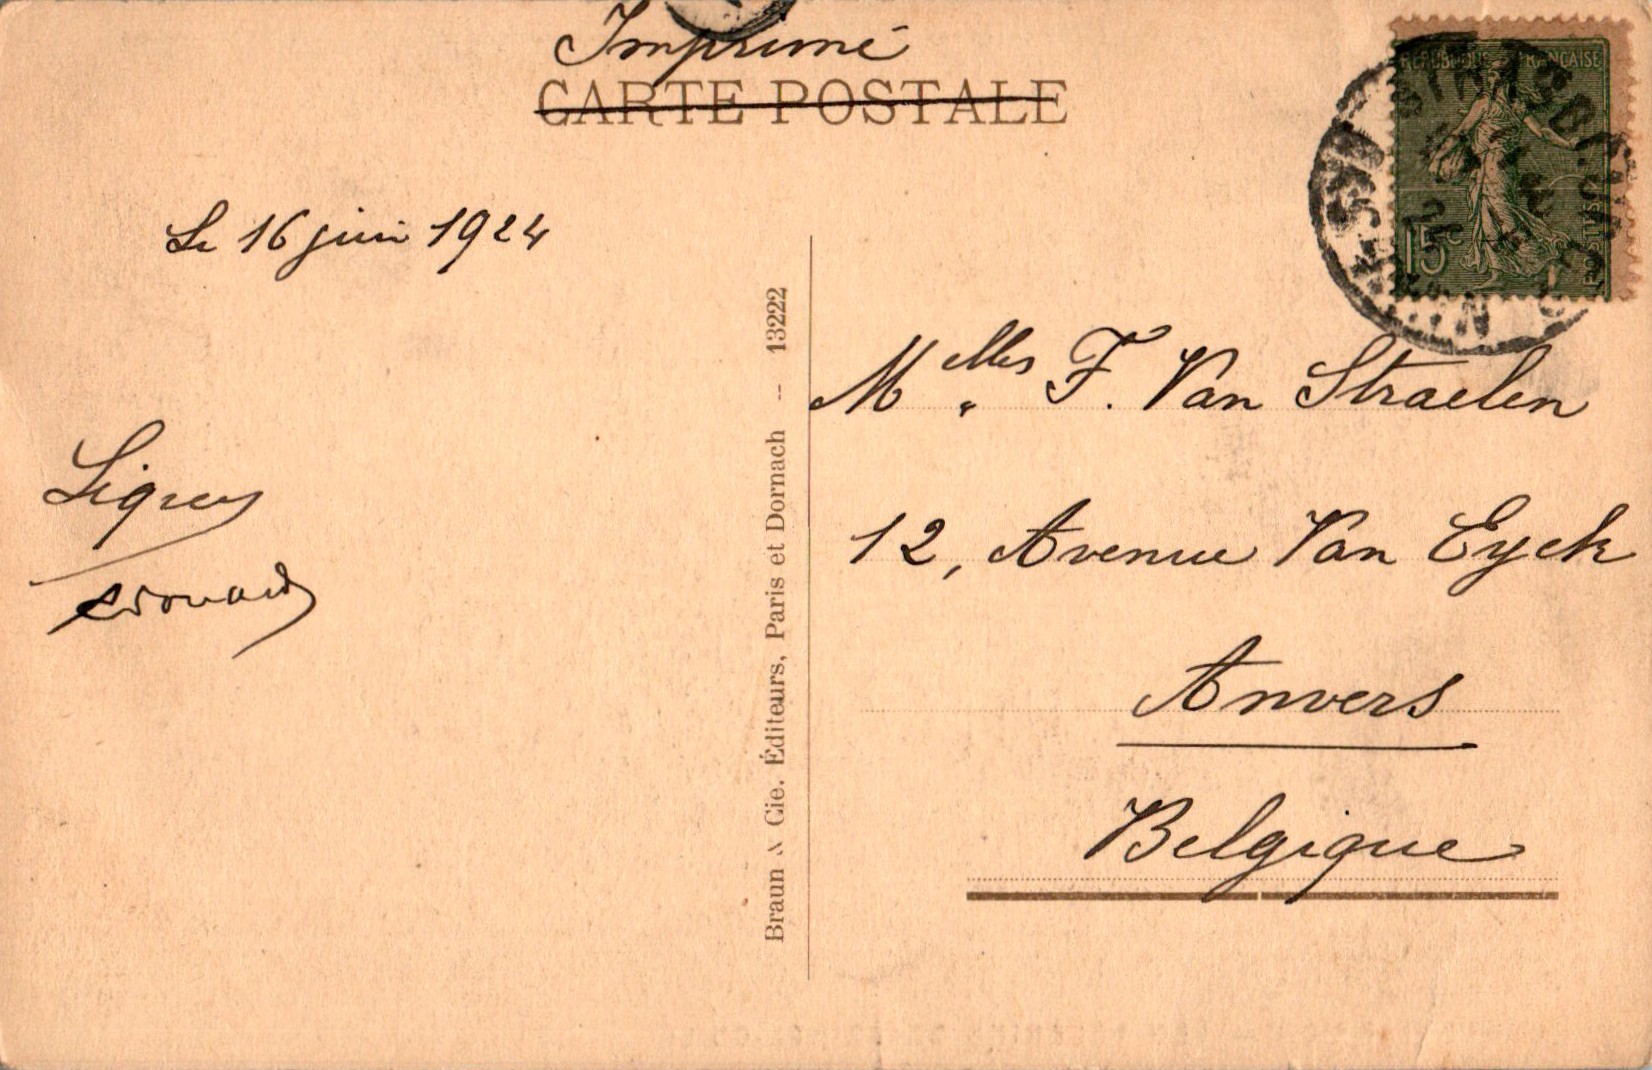 Imprimé
CARTE POSTALE
REPUBLIQUE FRANÇAISE
15c
POSTES
STRASBOURG
Le 16 juin 1924
Melles F. Van Straelen
12, Avenue Van Eyck
Anvers
Belgique
Edouard
Braun & Cie. Éditeurs, Paris et Dornach – 13222